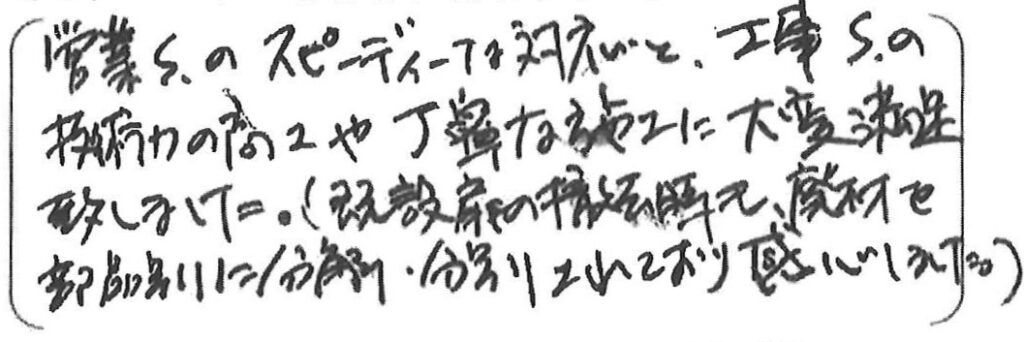 営業S.のスピーディーな対応と、工事S.の
技術力の高さや丁寧な施工に大変満足
致しました。(既設扉の撤去時も、廃材を
部品別に分解・分別されており感心しました。)